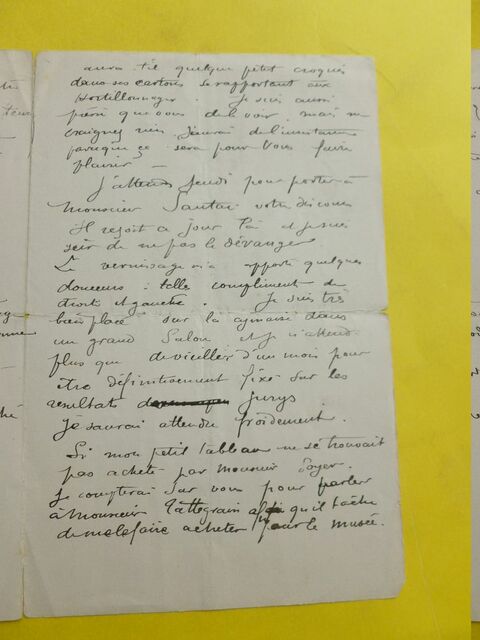 aura-t'il quelque petit croquis
dans ses cartons se rapportant aux
Hortillonnages. Je suis aussi
peiné que vous de le voir, mais ne
craignez rien j'aurai de l'insistance
puisque ce sera pour vous faire
plaisir —
J'attends Jeudi pour porter à
Monsieur votre discours
Il reçoit ce jour là et je suis
sûr de ne pas le déranger
Le vernissage m'a apporté quelques
douceurs: telles compliment de
droite et gauche. Je suis très
bien placé sur la cymaise dans
un grand Salon et je n'attends
plus que de vieillir d'un mois pour
être définitivement fixé sur les
résultats jurys
je saurai attendre froidement.
Si mon petit tableau ne se trouvait
pas acheté par Monsieur
je compterai sur vous pour parler
à Monsieur Tattegrain afin qu'il tâche
de me le faire acheter pour le musée.